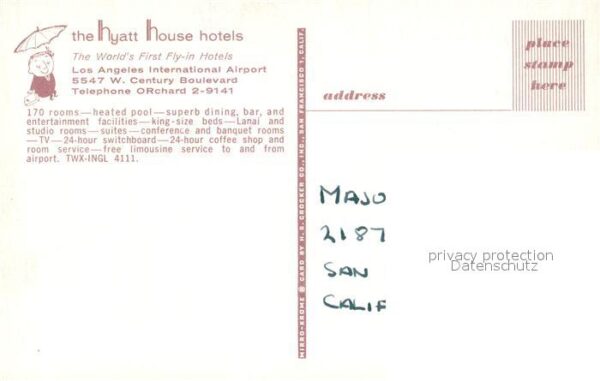 the hyatt house hotels
The World's First Fly-in Hotels
Los Angeles International Airport
5547 W. Century Boulevard
Telephone ORchard 2-9141
170 rooms—heated pool—superb dining, bar, and
entertainment facilities—king-size beds—Lanai and
studio rooms—suites—conference and banquet rooms
—TV—24-hour switchboard—24-hour coffee shop and
room service—free limousine service to and from
airport. TWX-INGL 4111.
MIRRO-KROME ® CARD BY H. S. CROCKER CO., INC., SAN FRANCISCO 1, CALIF.
place
stamp
here
address
MAJO
2187
SAN
CALIF
privacy protection
Datenschutz